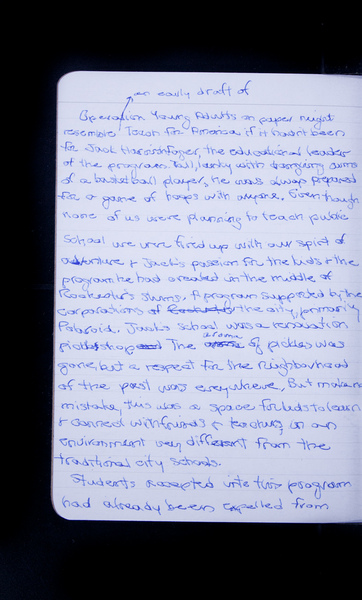 an early draft of
Operation Young Adults on paper might
resemble Teach for America if it hadn't been
for Jack Harnishfeger, the educational leader
of the program. Tall, lanky with swinging arms
of a basketball player, he was always prepared
for a game of hoops with anyone. Even though
none of us were planning to teach public
school we were fired up with our spirit of
adventure + Jack's passion for the kids + the
program he had created in the middle of
Rochester's slums. A program supported by the
corporations of the city, primarily
Polaroid. Jack's school was a renovation
pickle shop The aroma of pickles was
gone, but a respect for the neighborhood
of the past was everywhere. But make no
mistake, this was a space for kids to learn
+ connect with friends + teachers, in an
environment very different from the
traditional city schools.
Students accepted into this program
had already been expelled from